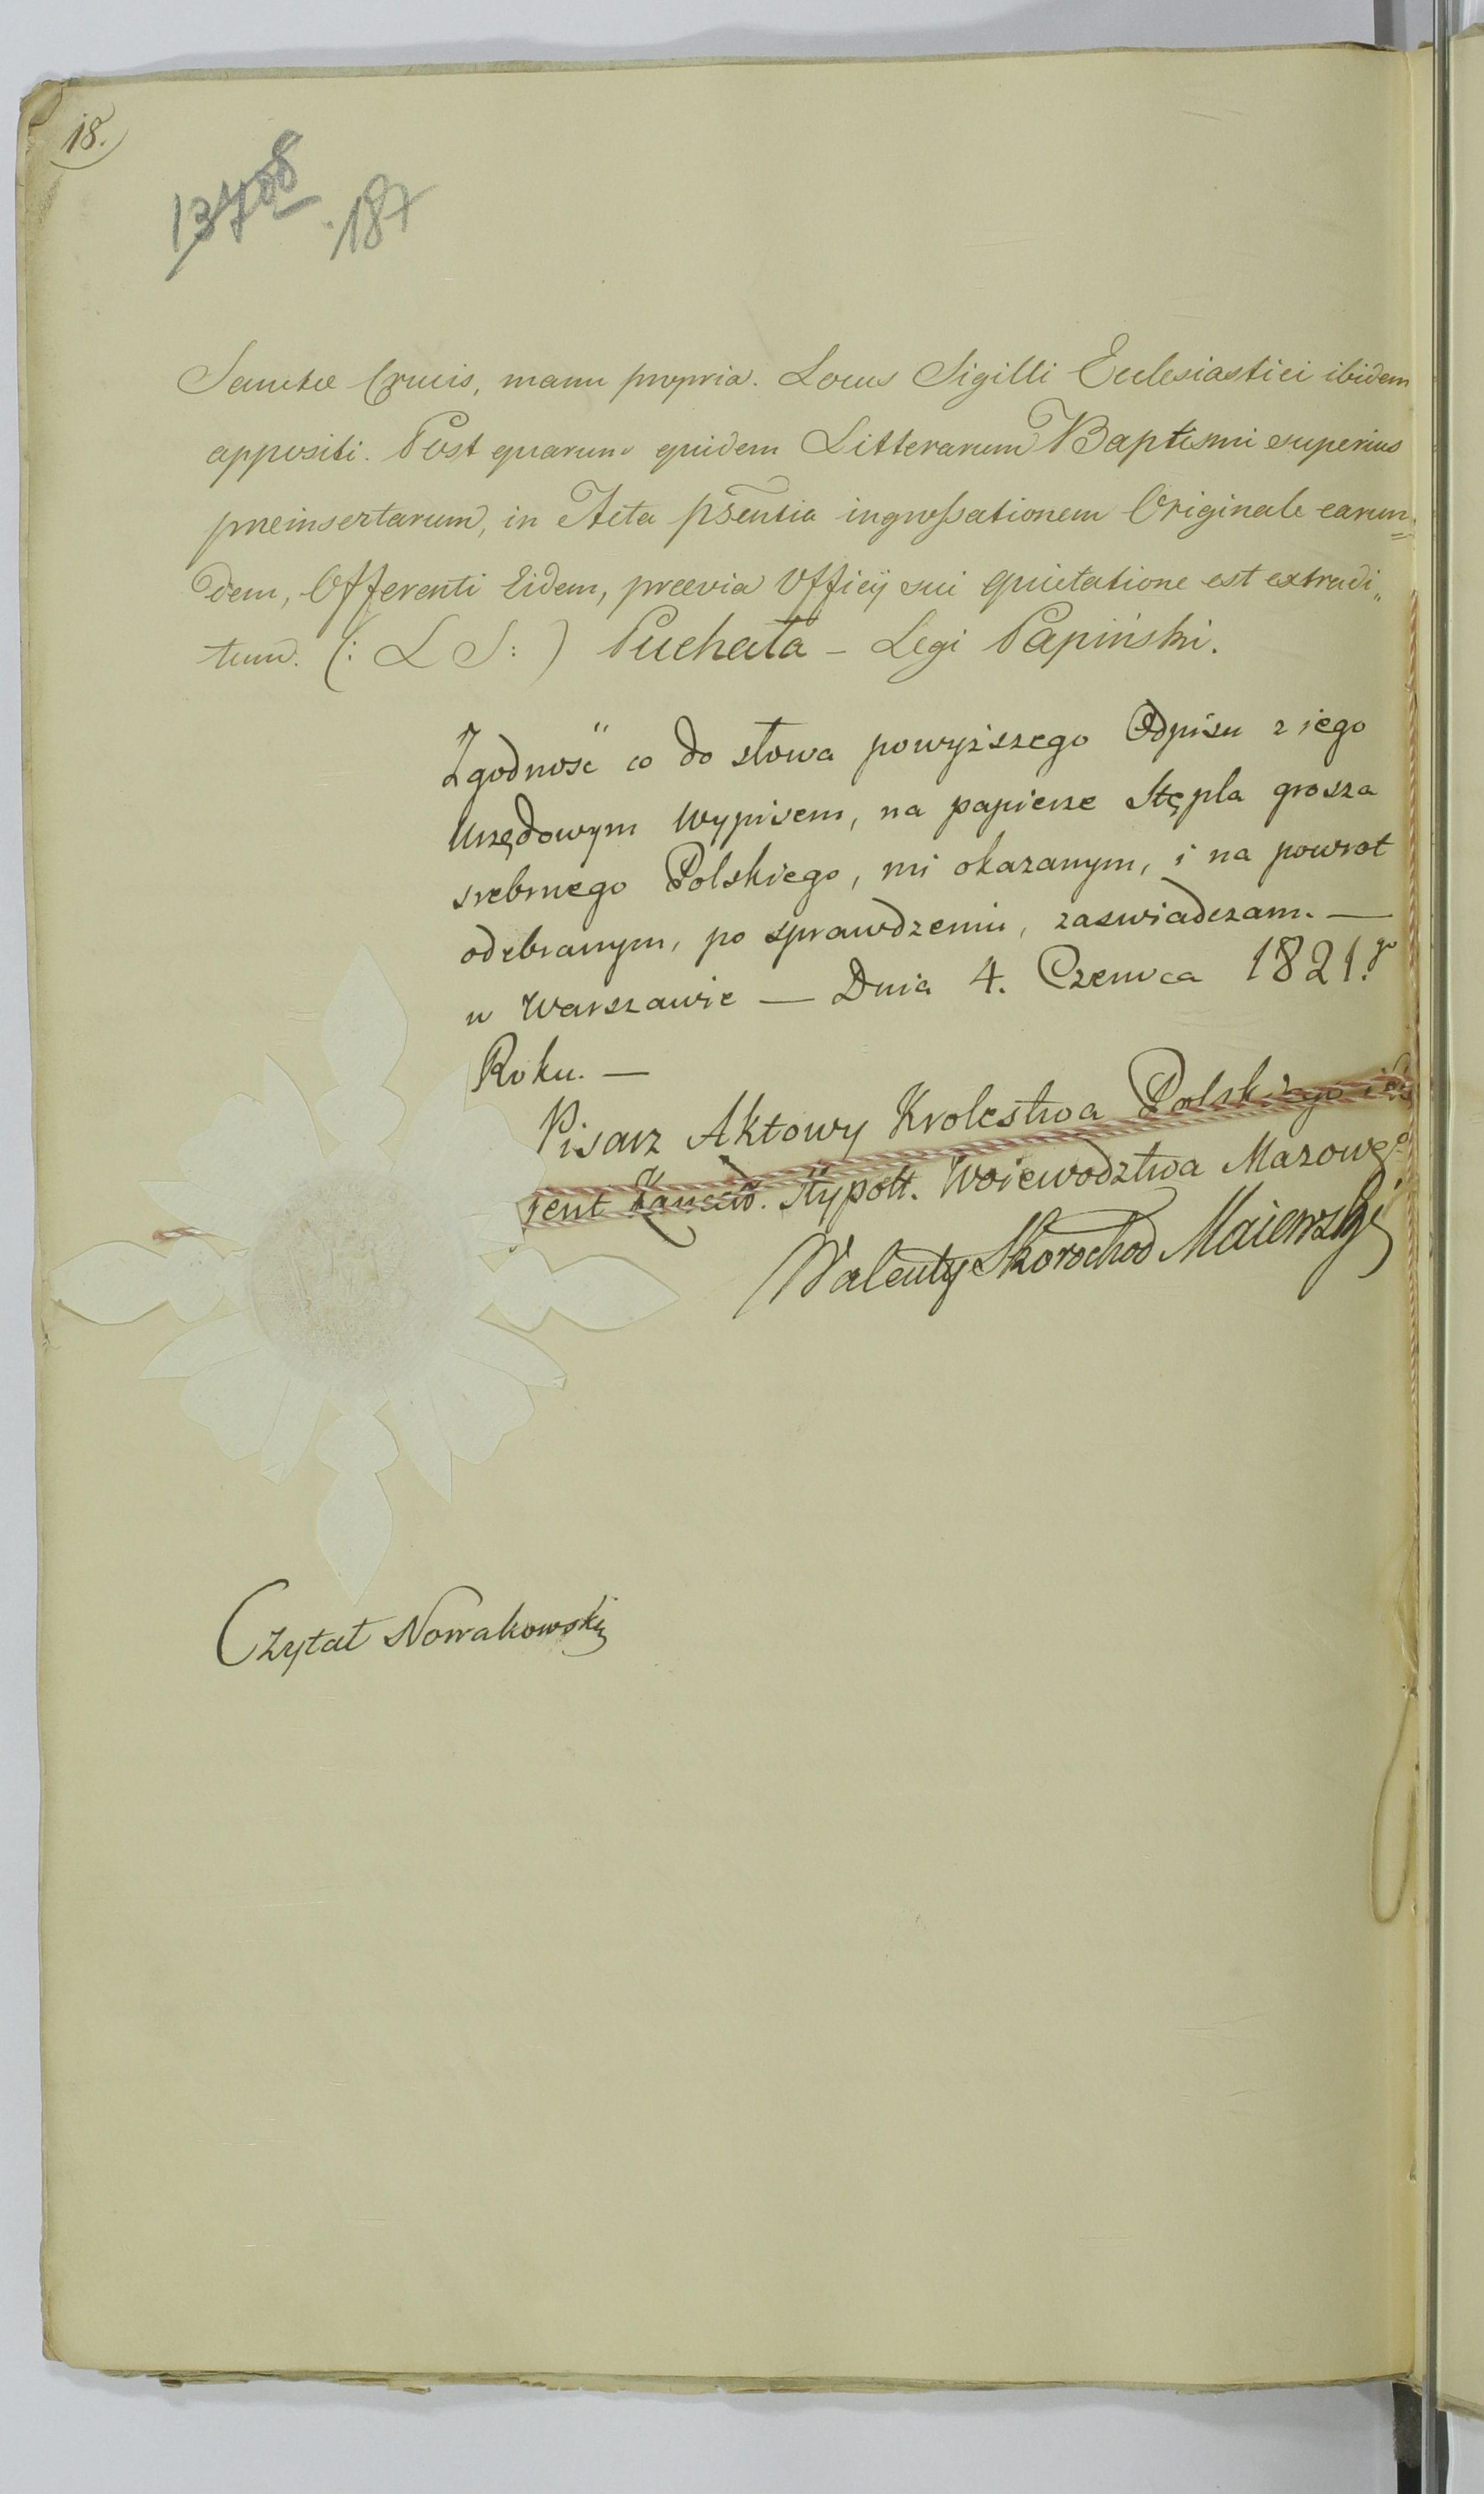 18.
13708
187
Sanctæ Crucis, manu propria. Locus Sigilli Ecclesiastici ibidem
appositi. Post quarum quidem Litterarum Baptismi superius
præinsertarum, in Acta pšentia ingrossationem Originale earun=
dem, Offerenti Eidem, prævia Officÿ sui quietatione est extradi„
tum. (: L S :) Puchała – Legi Papiński.
Zgodność co do słowa powyższego Odpisu z iego
Urzędowym Wypisem, na papierze Stępla grosza
srebrnego Polskiego, mi okazanym, i na powrot
odebranym, po sprawdzeniu, zaswiadczam. —
w Warszawie — Dnia 4. Czerwca 1821.go
Roku. —
Pisarz Aktowy Krolestwa Polskiego i
rent Hypott. Woiewodztwa Mazowgo
Walenty Skorochod Maiewski
Czytał Nowakowski